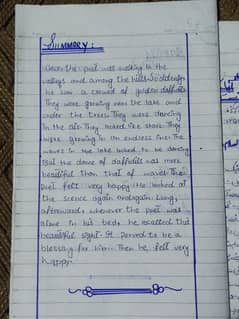 SUMMARY:
Once the poet was walking in the
valleys and among the hills. Suddenly
he saw a crowd of golden daffodils
They were growing near the lake and
under the trees. They were dancing
in the air. They looked like stars. They
were growing in an endless line. The
waves in the lake looked to be dancing
But the dance of daffodils was more
beautiful than that of waves. The
poet felt very happy. He looked at
the scene again and again. Long,
afterwards whenever the poet was
alone in his bed, he recalled this
beautiful sight. It proved to be a
blessing for him. Then he felt very
happy.